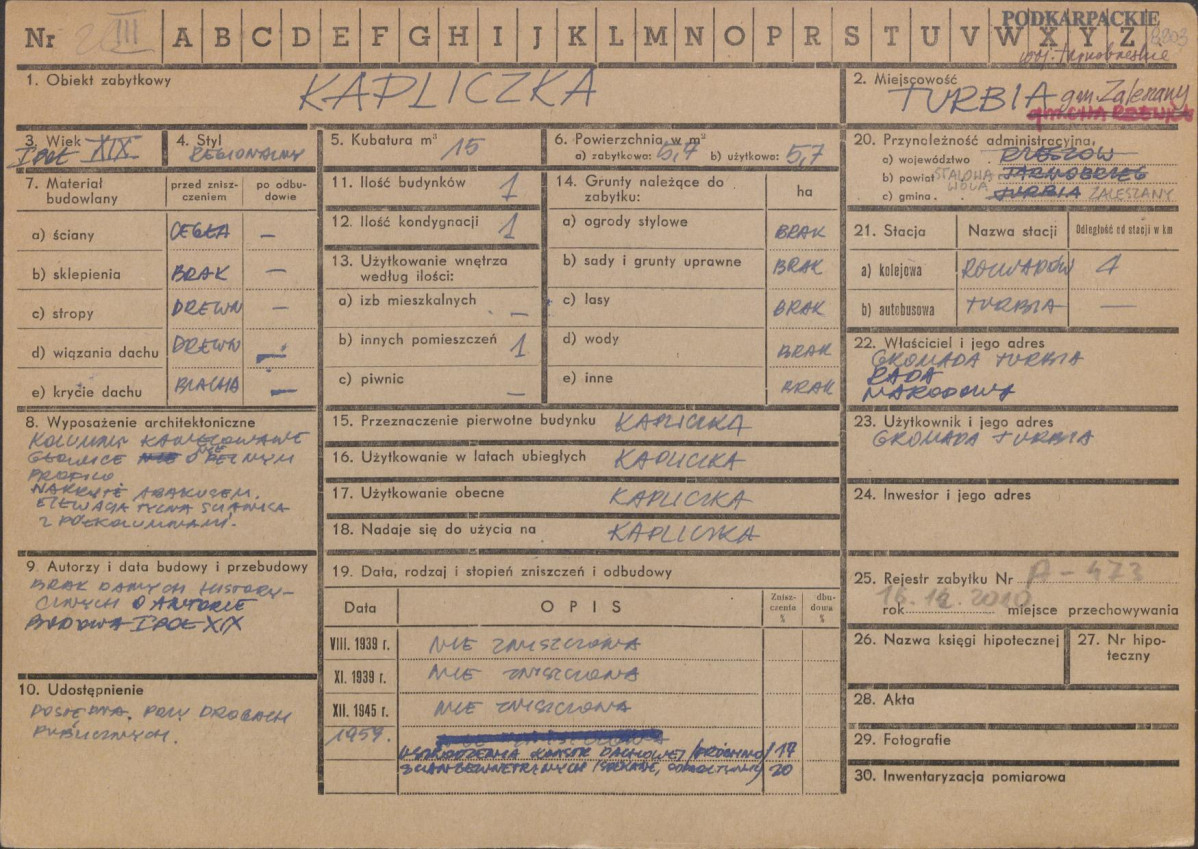 Nr III A B C D E F G H I J K L M N O P R S T U V W X Y Z
PODKARPACKIE
woj. tarnobrzeskie
1. Obiekt zabytkowy
KAPLICZKA
2. Miejscowość
TURBIA gm. Zaleszany
3. Wiek
I poł XIX
4. Styl
REGIONALNY
5. Kubatura m³ 15
6. Powierzchnia w m²
a) zabytkowa: 5,7 b) użytkowa: 5,7
7. Materiał budowlany
przed zniszczeniem
po odbudowie
a) ściany CEGŁA —
b) sklepienia BRAK —
c) stropy DREWN —
d) wiązania dachu DREWN —
e) krycie dachu BLACHA —
8. Wyposażenie architektoniczne
KOLUMNY KANELOWANE
GŁOWICE NIE O NIE PEŁNYM
PROFILU
NAKRYTE ABAKUSEM.
ELEWACJA TYLNA ŚCIANKA
Z PÓŁKOLUMNAMI.
9. Autorzy i data budowy i przebudowy
BRAK DANYCH HISTORY-
CZNYCH O AUTORZE
BUDOWA I POŁ XIX
10. Udostępnienie
DOSTĘPNA, PRZY DROGACH
PUBLICZNYCH.
11. Ilość budynków 1
12. Ilość kondygnacji 1
13. Użytkowanie wnętrza
według ilości:
a) izb mieszkalnych —
b) innych pomieszczeń 1
c) piwnic —
14. Grunty należące do
zabytku: ha
a) ogrody stylowe BRAK
b) sady i grunty uprawne BRAK
c) lasy BRAK
d) wody BRAK
e) inne BRAK
15. Przeznaczenie pierwotne budynku KAPLICZKA
16. Użytkowanie w latach ubiegłych KAPLICZKA
17. Użytkowanie obecne KAPLICZKA
18. Nadaje się do użycia na KAPLICZKA
19. Data, rodzaj i stopień zniszczeń i odbudowy
Data OPIS Zniszczenia % dbudowa %
VIII. 1939 r. NIE ZNISZCZONA
XI. 1939 r. NIE ZNISZCZONA
XII. 1945 r. NIE ZNISZCZONA
1959.
USZKODZENIA KONSTR DACHOWEJ /PRÓCHNO/ 17
20
20. Przynależność administracyjna
a) województwo RZESZÓW
b) powiat STALOWA WOLA TARNOBRZEG
c) gmina TURBIA ZALESZANY
21. Stacja Nazwa stacji Odległość od stacji w km
a) kolejowa ROZWADÓW 7
b) autobusowa TURBIA —
22. Właściciel i jego adres
GROMADA TURBIA
RADA
NARODOWA
23. Użytkownik i jego adres
GROMADA TURBIA
24. Inwestor i jego adres
25. Rejestr zabytku Nr A-473
16.12.2010
rok miejsce przechowywania
26. Nazwa księgi hipotecznej
27. Nr hipoteczny
28. Akta
29. Fotografie
30. Inwentaryzacja pomiarowa